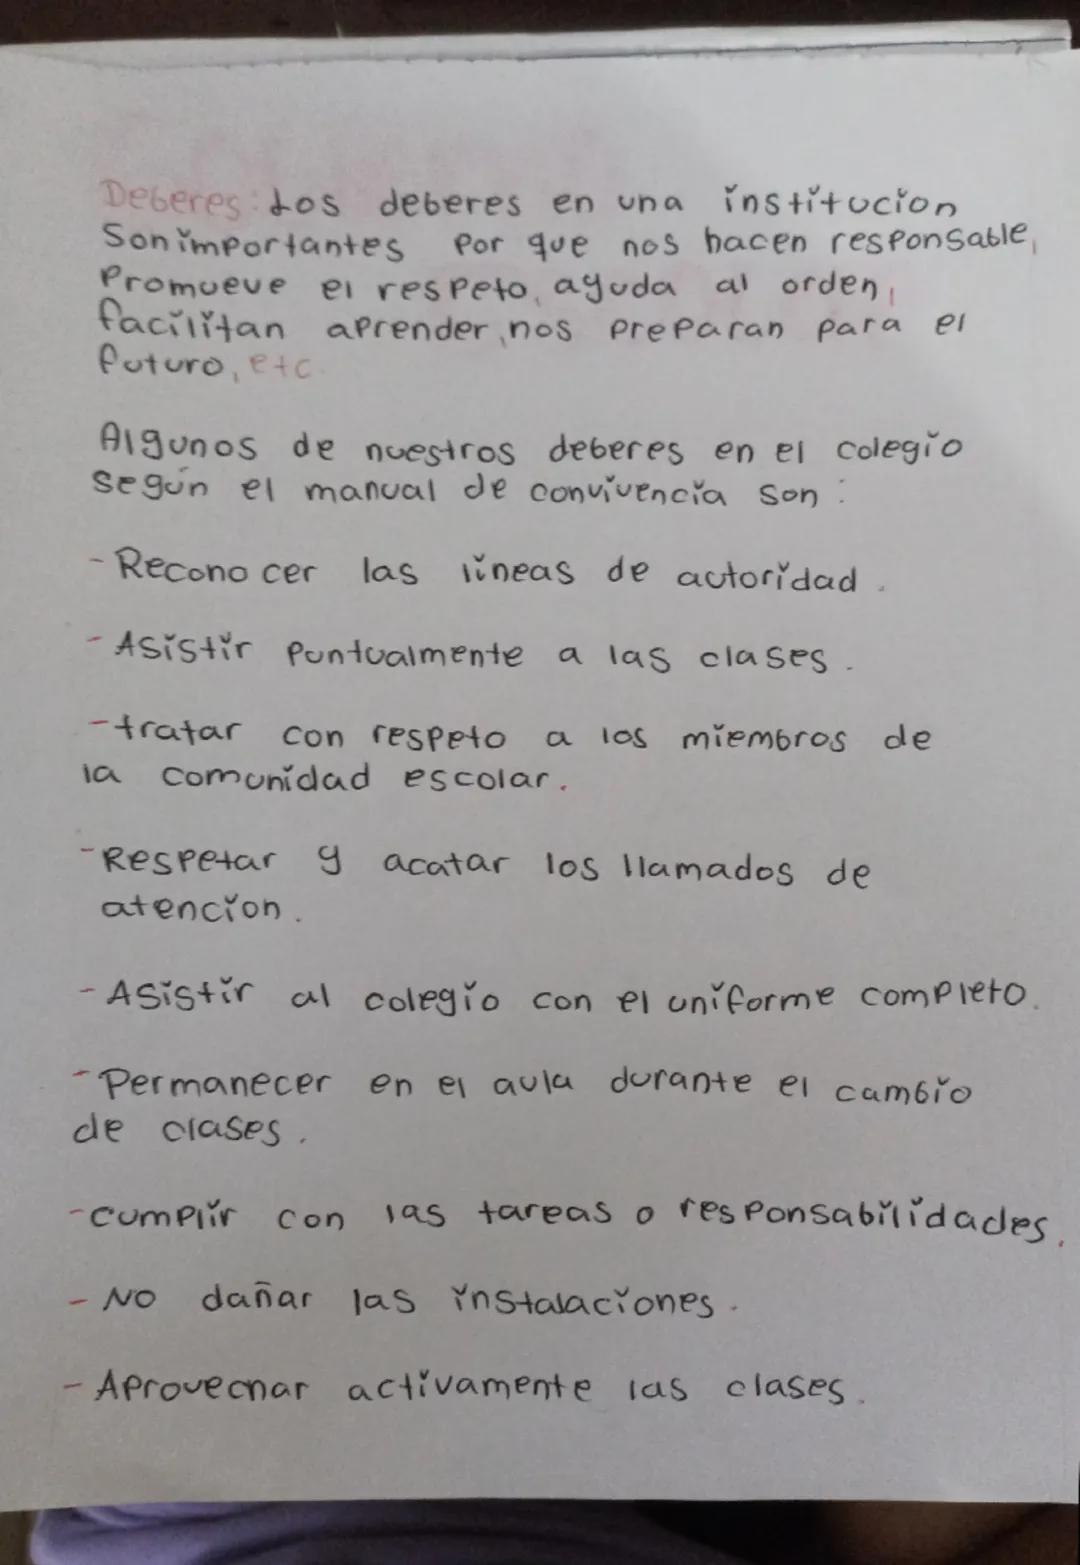 Deberes: Los deberes en una institucion
Son importantes por que nos hacen responsable,
Promueve el respeto, ayuda al orden,
facilitan aprender, nos preparan para el
futuro, etc.
Algunos de nuestros deberes en el colegio
según el manual de convivencia son:
- Reconocer las lineas de autoridad.
- Asistir puntualmente a las clases.
- tratar con respeto a los miembros de
la comunidad escolar.
- Respetar y acatar los llamados de
atencion.
- Asistir al colegio con el uniforme completo.
- Permanecer en el aula durante el cambio
de clases.
- cumplir con las tareas o responsabilidades.
- No dañar las instalaciones.
- Aprovechar activamente las clases.